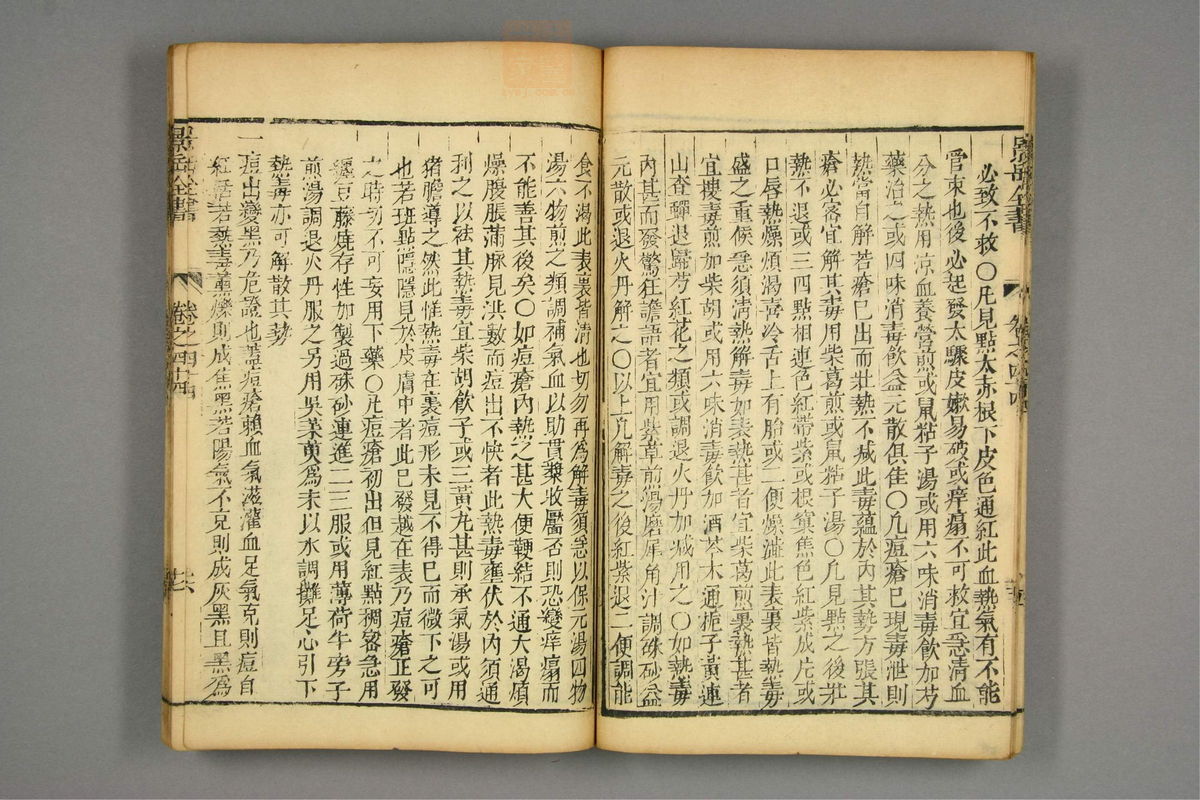 必致不救○凡見點太赤根下皮色通紅此血熱氣有不能
管束也後必起發太驟皮嫩易破或痒塌不可救宜急清血
分之熱用凉血養營煎或鼠粘子湯或用六味消毒飲加芍
藥治之或四味消毒飲益元散俱佳○凡痘瘡已現毒泄則
熱當自解若瘡已出而壯熱不减此毒蘊於内其勢方張其
瘡必密宜解其毒用柴葛煎或鼠粘子湯○凡見點之後壯
熱不退或三四點相連色紅帶紫或根窠焦色紅紫成片或
口唇熱燥煩渴舌上有胎或二便燥澁此表裏皆熱毒
盛之重候急須清熱解毒如表熱甚者宜柴葛煎裏熱甚者
宜搜毒煎加柴胡或用六味消毒飲加酒芩木通梔子黃連
山查蟬退歸芍紅花之類或調退火丹加减用之○如熱毒
内甚而發驚狂譫語者宜用紫草煎湯磨犀角汁調硃砂益
元散或退火丹解之○以上凡解毒之後紅紫退二便調能
食不渴此表裏皆清也切勿再爲解毒須急以保元湯四物
湯六物煎之類調補氣血以助貫漿收靨否則恐變痒塌而
不能善其後矣○如痘瘡内熱之甚大便鞕結不通大渴煩
燥腹脹滿脉見洪數而痘出不快者此熱毒壅伏於内須通
利之以祛其熱毒宜柴胡飲子或三黃丸甚則承氣湯或用
猪膽導之然此惟熱毒在裏痘形未見不得已而微下之可
也若班點隱隱見於皮膚中者此已發越在表乃痘瘡正發
之時切不可妄用下藥○凡痘瘡初出但見紅點稠密急用
纏豆藤燒存性加製過硃砂連進二三服或用薄荷牛旁子
煎湯調退火丹服之另用吳茱萸爲末以水調攤足心引下
熱毒亦可解散其勢
一痘出變黑乃危證也蓋痘瘡賴血氣滋灌血足氣克則痘自
紅活若熱毒薰爍則成焦黑若陽氣不克則成灰黑且黑爲
景岳全書
卷之四十四
景岳全書